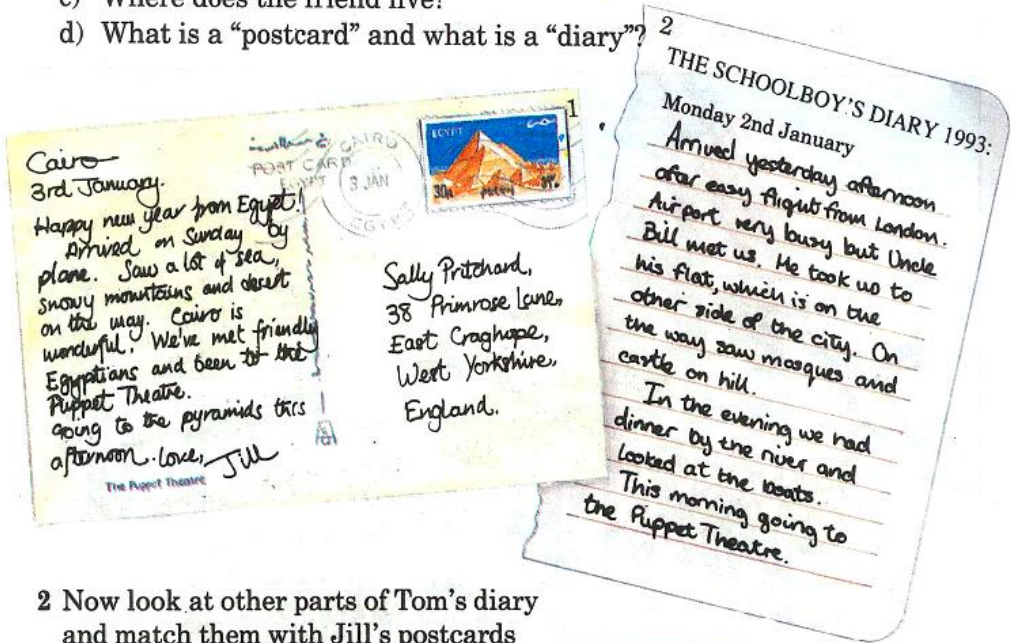 c) Where does the friend live?
d) What is a “postcard” and what is a “diary”?
1
Cairo
3rd January.
Happy new year from Egypt!
Arrived on Sunday by
plane. Saw a lot of sea,
snowy mountains and desert
on the way. Cairo is
wonderful. We've met friendly
Egyptians and been to the
Puppet Theatre.
Going to the pyramids this
afternoon. Love, Jill
The Puppet Theatre
CAIRO
POST CARD
EGYPT
3 JAN
EGYPT
EGYPT
30
Sally Pritchard,
38 Primrose Lane,
East Craghope,
West Yorkshire,
England.
2
THE SCHOOLBOY'S DIARY 1993:
Monday 2nd January
Arrived yesterday afternoon
after easy flight from London.
Airport very busy but Uncle
Bill met us. He took us to
his flat, which is on the
other side of the city. On
the way saw mosques and
castle on hill.
In the evening we had
dinner by the river and
looked at the boats.
This morning going to
the Puppet Theatre.
2 Now look at other parts of Tom's diary
and match them with Jill's postcards